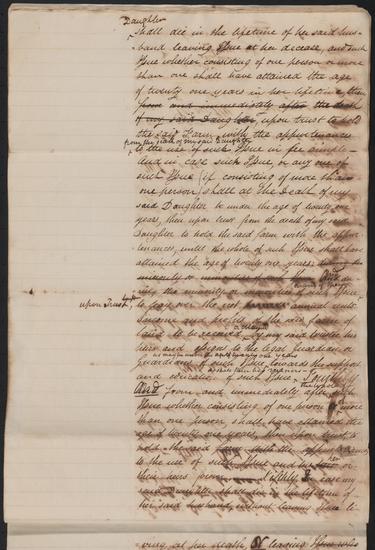 Daughter
shall die in the lifetime of her said hus-
band leaving Issue at her decease, and such
Issue whether consisting of one person or more
than one shall have attained the age
of twenty one years in her lifetime then
from and immediately after the death
of my said Daughter upon trust to hold
the said Farm with the appurtenances
from the death of my said Daughter
to the use of such Issue in fee simple
And in case such Issue, or any one of
such Issue (if consisting of more than
one person) shall at the Death of my
said Daughter be under the age of twenty one
years, then upon trust from the death of my said
Daughter to hold the said farm with the appur
tenances, until the whole of such Issue shall have
attained the age of twenty one years
And
the minority or of such Issue
upon Trust
to pay over the annual rents
Income and profits of the said farm
to be received by my said trustee his
heirs and assigns to the legal guardian or
Guardians of such Issue towards the support
and education of such Issue,
And from and immediately after
Issue whether consisting of one person or more
than one person shall have attained the
age of twenty one years, then upon trust to
hold the said farm with the appurtenances
to the use of such Issue and his her or
their heirs In case my
said Daughter shall die in the lifetime of
her said husband, without leaving Issue li
ving at her death, Or leaving Issue who